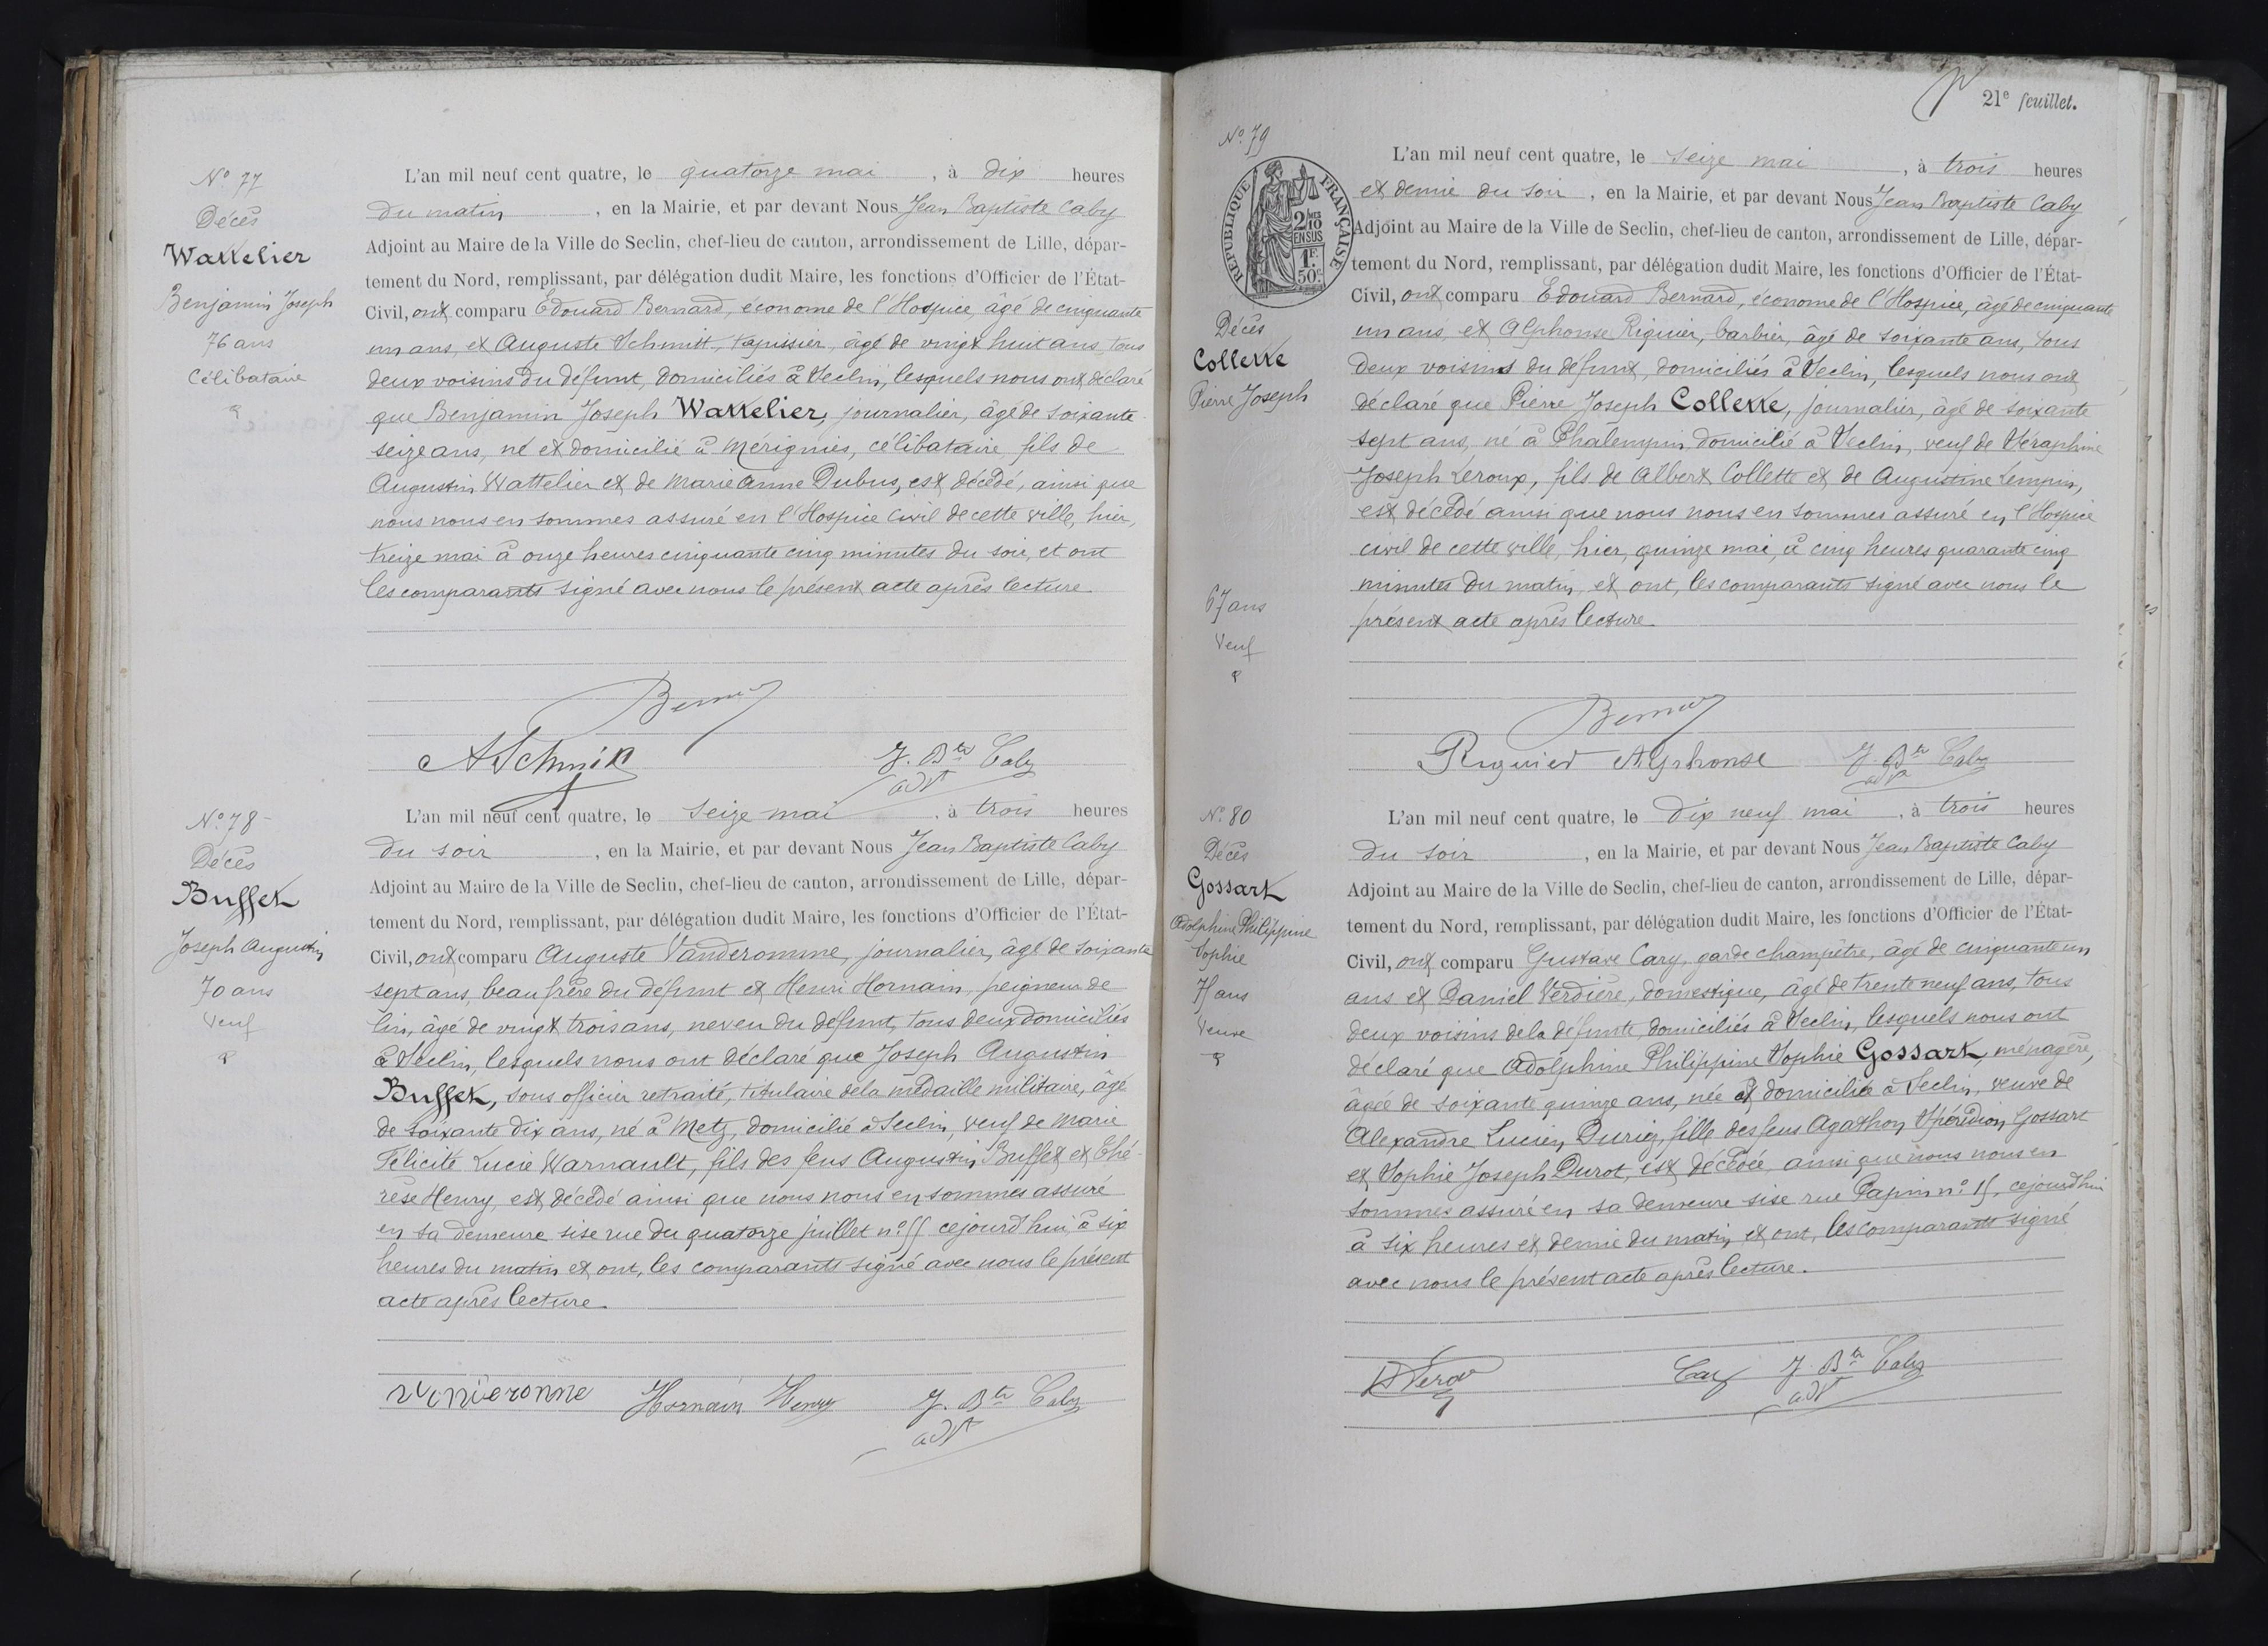 N° 77
Décès
Wattelier
Benjamin Joseph
76 ans
Célibataire
L'an mil neuf cent quatre, le quatorze mai, à dix heures
du matin, en la Mairie, et par devant Nous Jean Baptiste Caby
Adjoint au Maire de la Ville de Seclin, chef-lieu de canton, arrondissement de Lille, dépar-
tement du Nord, remplissant, par délégation dudit Maire, les fonctions d'Officier de l'État-
Civil, ont comparu Edouard Bernard, économe de l'Hospice, âgé de cinquante
un ans, et Auguste Schmitt, tapissier, âgé de vingt huit ans, tous
deux voisins du défunt, domiciliés à Seclin, lesquels nous ont déclaré
que Benjamin Joseph Wattelier, journalier, âgé de soixante
seize ans, né et domicilié à Mérignies, célibataire, fils de
Augustin Wattelier et de Marie Anne Dubus, est décédé, ainsi que
nous nous en sommes assuré en l'Hospice civil de cette ville, hier,
treize mai à onze heures cinquante cinq minutes du soir, et ont
les comparants signé avec nous le présent acte après lecture.
Bernard
A Schmitt
J. Bte Caby
adjt
N° 78
Décès
Buffet
Joseph Augustin
70 ans
Veuf
L'an mil neuf cent quatre, le seize mai, à trois heures
du soir, en la Mairie, et par devant Nous Jean Baptiste Caby
Adjoint au Maire de la Ville de Seclin, chef-lieu de canton, arrondissement de Lille, dépar-
tement du Nord, remplissant, par délégation dudit Maire, les fonctions d'Officier de l'État-
Civil, ont comparu Auguste Vanderomme, journalier, âgé de soixante
sept ans, beau frère du défunt et Henri Hornain, peigneur de
lin, âgé de vingt trois ans, neveu du défunt, tous deux domiciliés
à Seclin, lesquels nous ont déclaré que Joseph Augustin
Buffet, sous officier retraité, titulaire de la médaille militaire, âgé
de soixante dix ans, né à Metz, domicilié à Seclin, veuf de Marie
Félicité Lucie Warnault, fils des feus Augustin Buffet et Thé-
rèse Henry, est décédé ainsi que nous nous en sommes assuré
en sa demeure sise rue du quatorze juillet n° 55 cejourd'hui, à six
heures du matin et ont, les comparants signé avec nous le présent
acte après lecture.
Hornain Henry
J. Bte Caby
adjt
21e feuillet.
N° 79
RÉPUBLIQUE FRANÇAISE
2/10 EN SUS
1F. 50c.
Décès
Collette
Pierre Joseph
67 ans
Veuf
L'an mil neuf cent quatre, le seize mai, à trois heures
et demie du soir, en la Mairie, et par devant Nous Jean Baptiste Caby
Adjoint au Maire de la Ville de Seclin, chef-lieu de canton, arrondissement de Lille, dépar-
tement du Nord, remplissant, par délégation dudit Maire, les fonctions d'Officier de l'État-
Civil, ont comparu Edouard Bernard, économe de l'Hospice, âgé de cinquante
un ans, et Alphonse Riquier, barbier, âgé de soixante ans, tous
deux voisins du défunt, domiciliés à Seclin, lesquels nous ont
déclaré que Pierre Joseph Collette, journalier, âgé de soixante
sept ans, né à Phalempin, domicilié à Seclin, veuf de Séraphine
Joseph Leroux, fils de Albert Collette et de Augustine Lempin,
est décédé ainsi que nous nous en sommes assuré en l'Hospice
civil de cette ville, hier, quinze mai, à cinq heures quarante cinq
minutes du matin, et ont, les comparants signé avec nous le
présent acte après lecture.
Bernard
Riquier Alphonse
J. Bte Caby
adjt
N° 80
Décès
Gossart
Adolphine Philippine
Sophie
75 ans
Veuve
L'an mil neuf cent quatre, le dix neuf mai, à trois heures
du soir, en la Mairie, et par devant Nous Jean Baptiste Caby
Adjoint au Maire de la Ville de Seclin, chef-lieu de canton, arrondissement de Lille, dépar-
tement du Nord, remplissant, par délégation dudit Maire, les fonctions d'Officier de l'État-
Civil, ont comparu Gustave Cary, garde champêtre, âgé de cinquante un
ans et Daniel Verdière, domestique, âgé de trente neuf ans, tous
deux voisins de la défunte, domiciliés à Seclin, lesquels nous ont
déclaré que Adolphine Philippine Sophie Gossart, ménagère,
âgée de soixante quinze ans, née et domiciliée à Seclin, veuve de
Alexandre Lucien Duriez, fille des feus Agathon Spéridion Gossart
et Sophie Joseph Durot, est décédée, ainsi que nous nous en
sommes assuré en sa demeure sise rue Papin n° 15, cejourd'hui
à six heures et demie du matin, et ont, les comparants signé
avec nous le présent acte après lecture.
Cary
J. Bte Caby
adjt